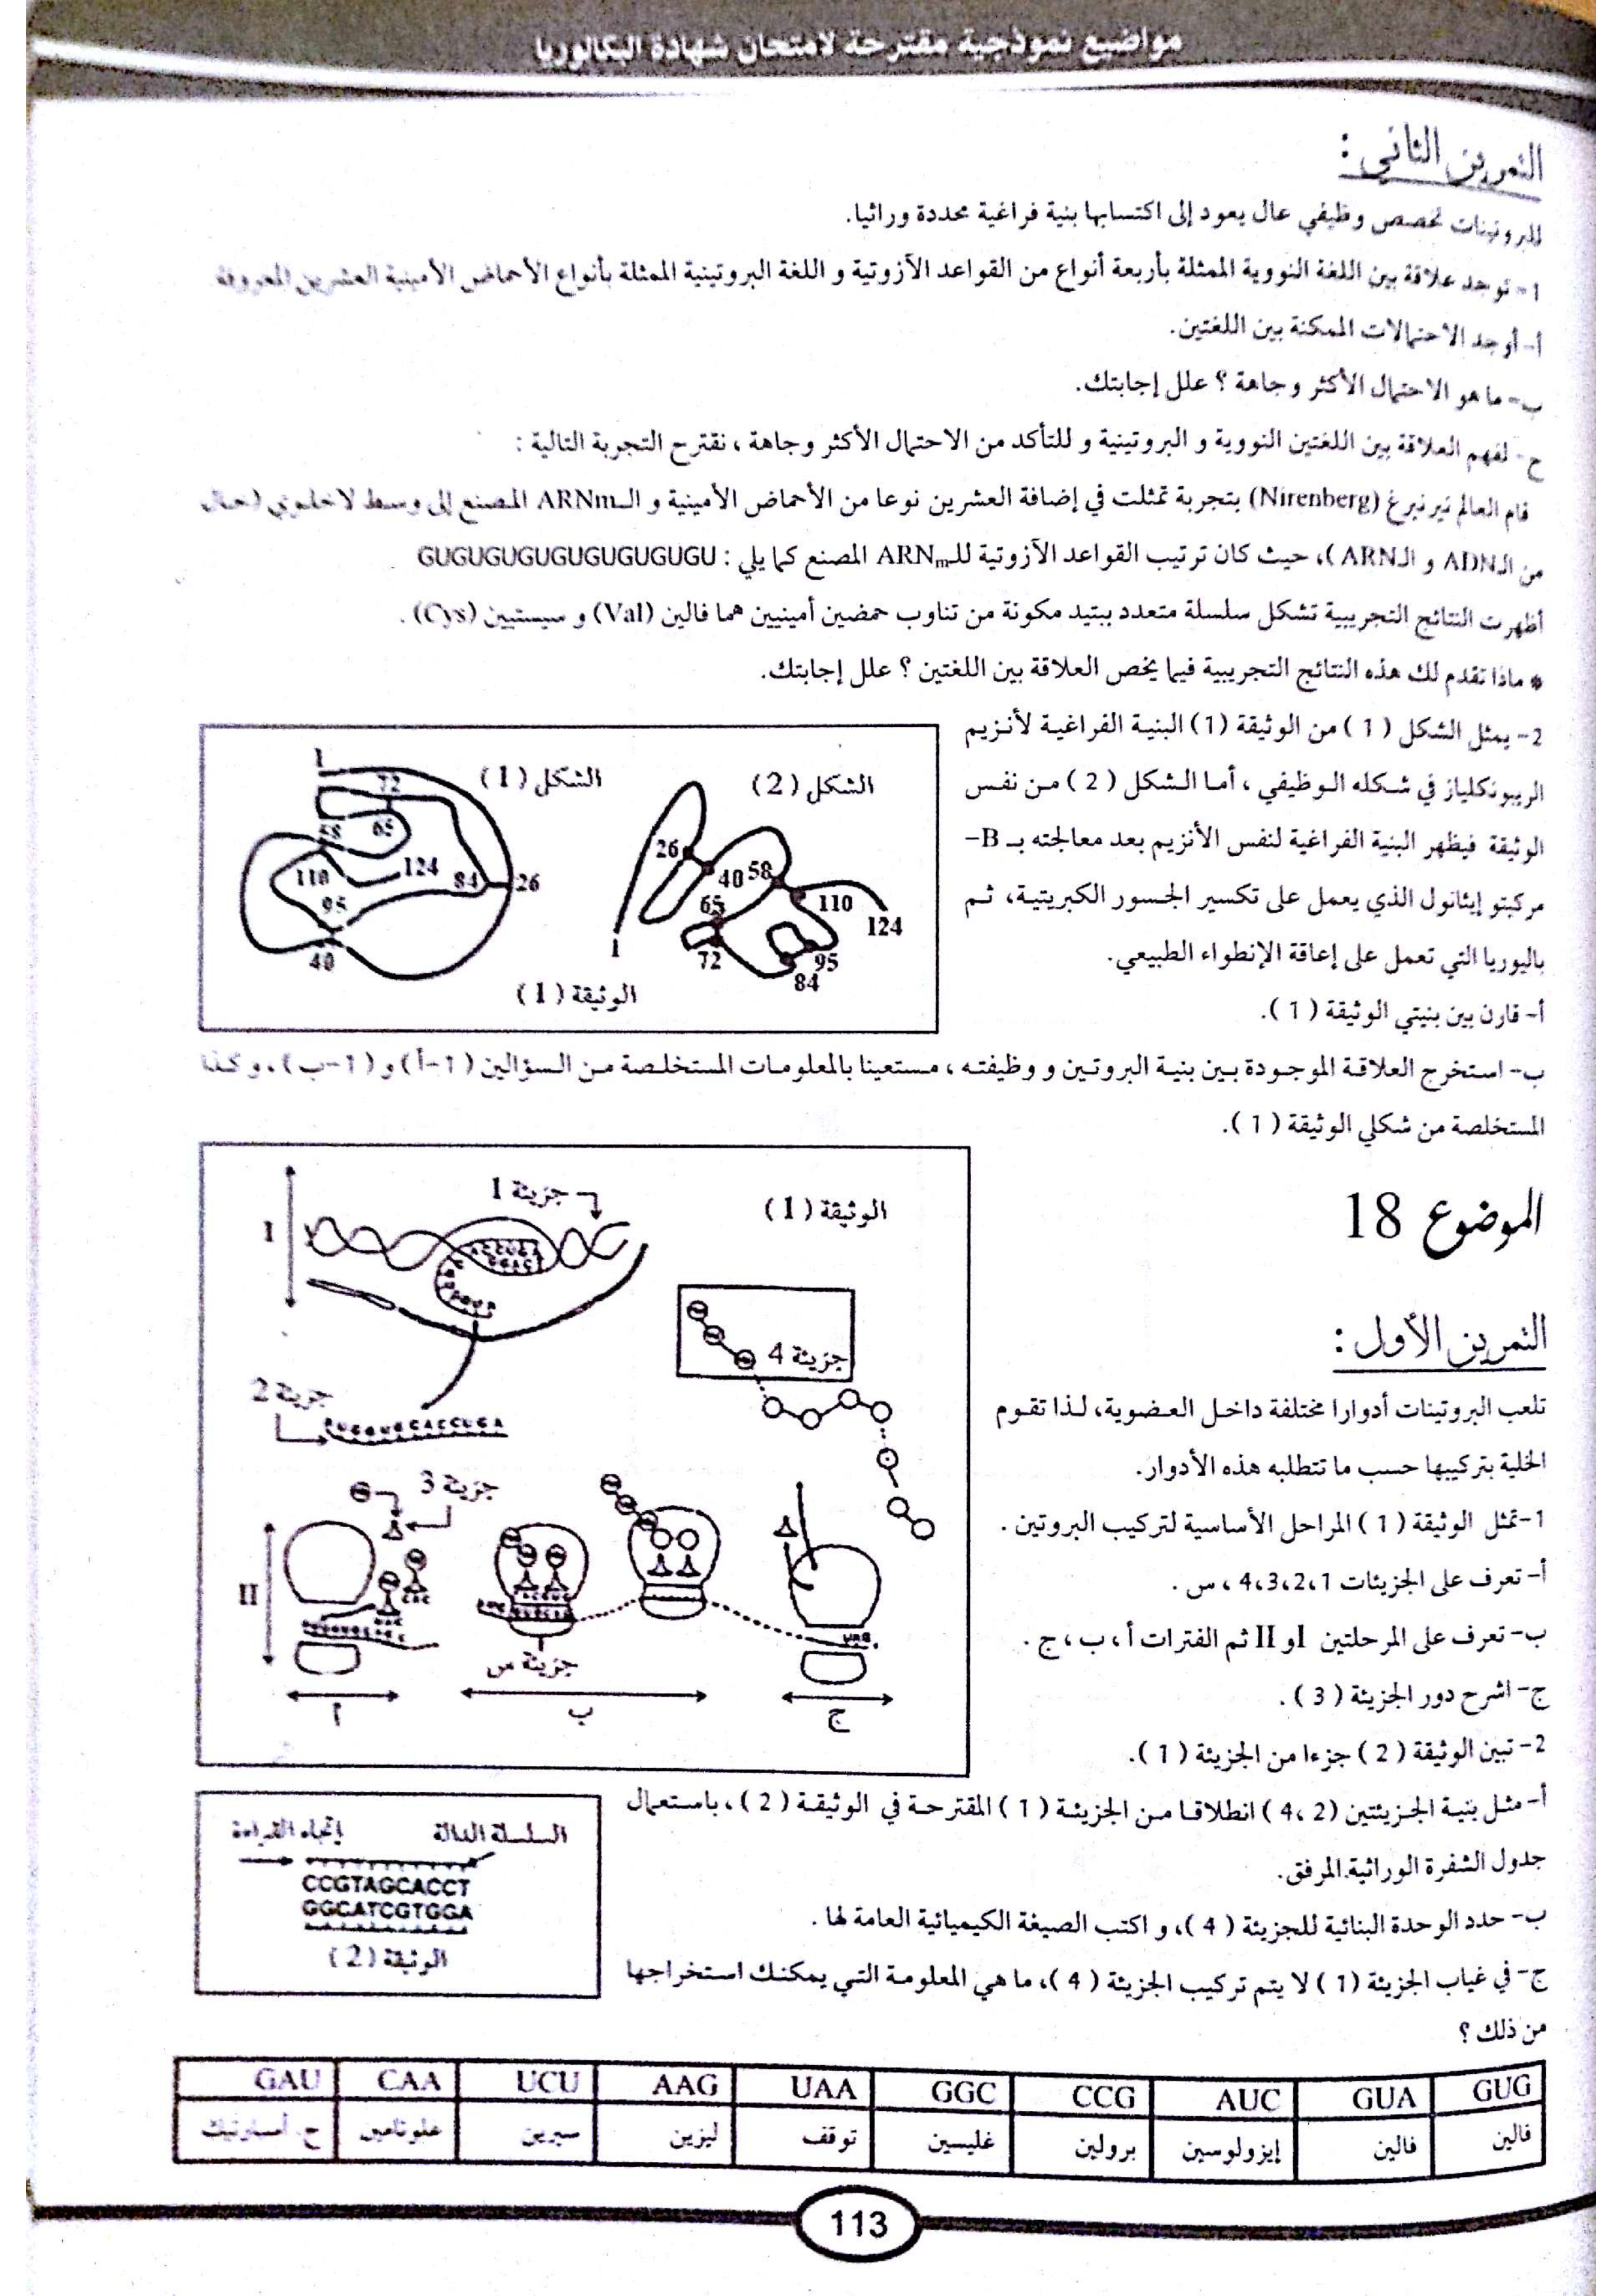 مواضيع نموذجية مقترحة لامتحان شهادة البكالوريا
التمرين الثاني :
للبروتينات تخصص وظيفي عال يعود إلى اكتسابها بنية فراغية محددة وراثيا.
1- توجد علاقة بين اللغة النووية الممثلة بأربعة أنواع من القواعد الآزوتية و اللغة البروتينية الممثلة بأنواع الأحماض الأمينية العشرين المعروفة
أ- أوجد الاحتمالات الممكنة بين اللغتين.
ب- ما هو الاحتمال الأكثر وجاهة ؟ علل إجابتك.
ح- لفهم العلاقة بين اللغتين النووية و البروتينية و للتأكد من الاحتمال الأكثر وجاهة ، نقترح التجربة التالية :
قام العالم نيرنبرغ (Nirenberg) بتجربة تمثلت في إضافة العشرين نوعا من الأحماض الأمينية و الـARNm المصنع إلى وسط لاخلوي (خال
من الـADN و الـARN )، حيث كان ترتيب القواعد الآزوتية للـARNm المصنع كما يلي : GUGUGUGUGUGUGUGUGU
أظهرت النتائج التجريبية تشكل سلسلة متعدد ببتيد مكونة من تناوب حمضين أمينيين هما فالين (Val) و سيستيين (Cys) .
* ماذا تقدم لك هذه النتائج التجريبية فيما يخص العلاقة بين اللغتين ؟ علل إجابتك.
2- يمثل الشكل (1) من الوثيقة (1) البنية الفراغية لأنزيم
الريبونكلياز في شكله الوظيفي ، أما الشكل (2) من نفس
الوثيقة فيظهر البنية الفراغية لنفس الأنزيم بعد معالجته بـ B-
مركبتو إيثانول الذي يعمل على تكسير الجسور الكبريتية، ثم
باليوريا التي تعمل على إعاقة الإنطواء الطبيعي.
أ- قارن بين بنيتي الوثيقة (1).
الشكل (1)
1
72
58
65
110
124
84
26
95
40
الشكل (2)
26
40
58
65
110
124
72
95
84
1
الوثيقة (1)
ب- استخرج العلاقة الموجودة بين بنية البروتين و وظيفته ، مستعينا بالمعلومات المستخلصة من السؤالين (1-أ) و (1-ب) ، و كذا
المستخلصة من شكلي الوثيقة (1).
الموضوع 18
التمرين الأول :
تلعب البروتينات أدوارا مختلفة داخل العضوية، لذا تقوم
الخلية بتركيبها حسب ما تتطلبه هذه الأدوار.
1-تمثل الوثيقة (1) المراحل الأساسية لتركيب البروتين .
أ- تعرف على الجزيئات 4،3،2،1 ، س .
ب- تعرف على المرحلتين I و II ثم الفترات أ ، ب ، ج .
ج- اشرح دور الجزيئة (3) .
2- تبين الوثيقة (2) جزءا من الجزيئة (1).
الوثيقة (1)
جزيئة 1
I
جزيئة 4
جزيئة 2
جزيئة 3
II
CAC
UAG
جزيئة س
أ
ب
ج
أ- مثل بنية الجزيئتين (2، 4) انطلاقا من الجزيئة (1) المقترحة في الوثيقة (2)، باستعمال
جدول الشفرة الوراثية المرفق.
ب- حدد الوحدة البنائية للجزيئة (4)، و اكتب الصيغة الكيميائية العامة لها .
ج- في غياب الجزيئة (1) لا يتم تركيب الجزيئة (4)، ما هي المعلومة التي يمكنك استخراجها
من ذلك ؟
السلسلة الدالة
إتجاه القراءة
CCGTAGCACCT
GGCATCGTGGA
الوثيقة (2)
GUG GUA AUC CCG GGC UAA AAG UCU CAA GAU
فالين فالين إيزولوسين برولين غليسين توقف ليزين سيرين غلوتامين ح. أسبارتيك
113